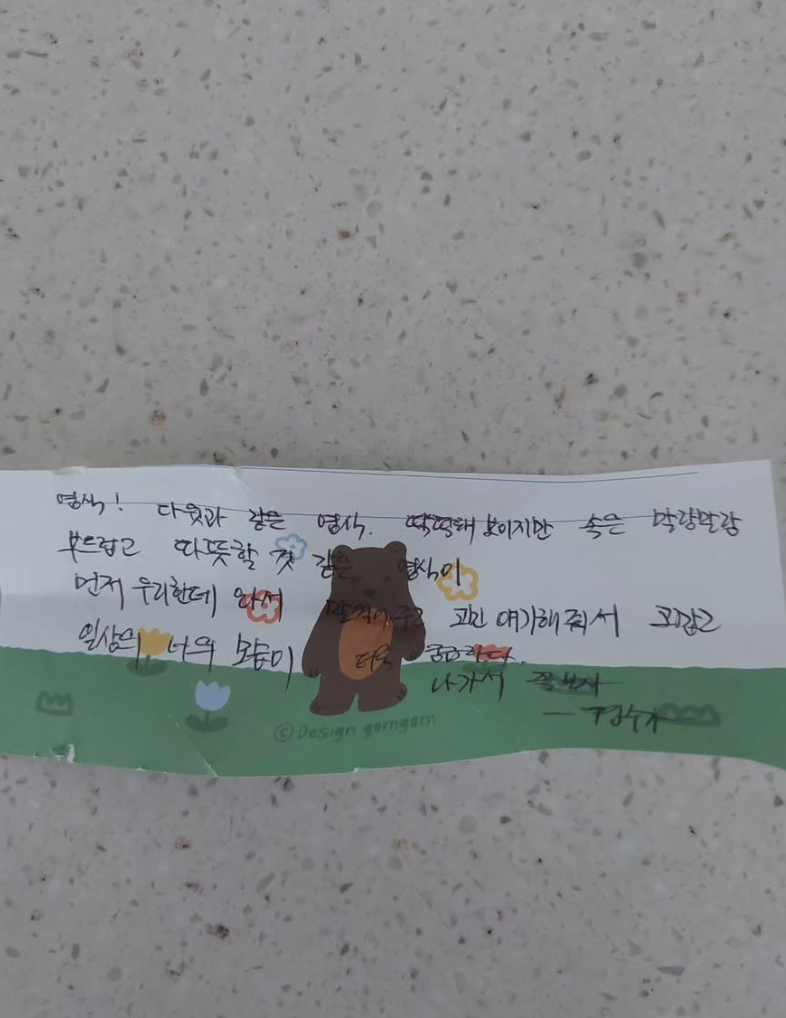 영식! 다윗과 같은 영식. 딱딱해 보이지만 속은 말랑말랑
부드럽고 따뜻할 것 같은 영식이
먼저 우리한데 와서 말걸어주고 고민 얘기해줘서 고맙고
일상의 너의 모습이 더욱 궁금하다.
나가서 꼭 보자
ⓒDesign gomgom